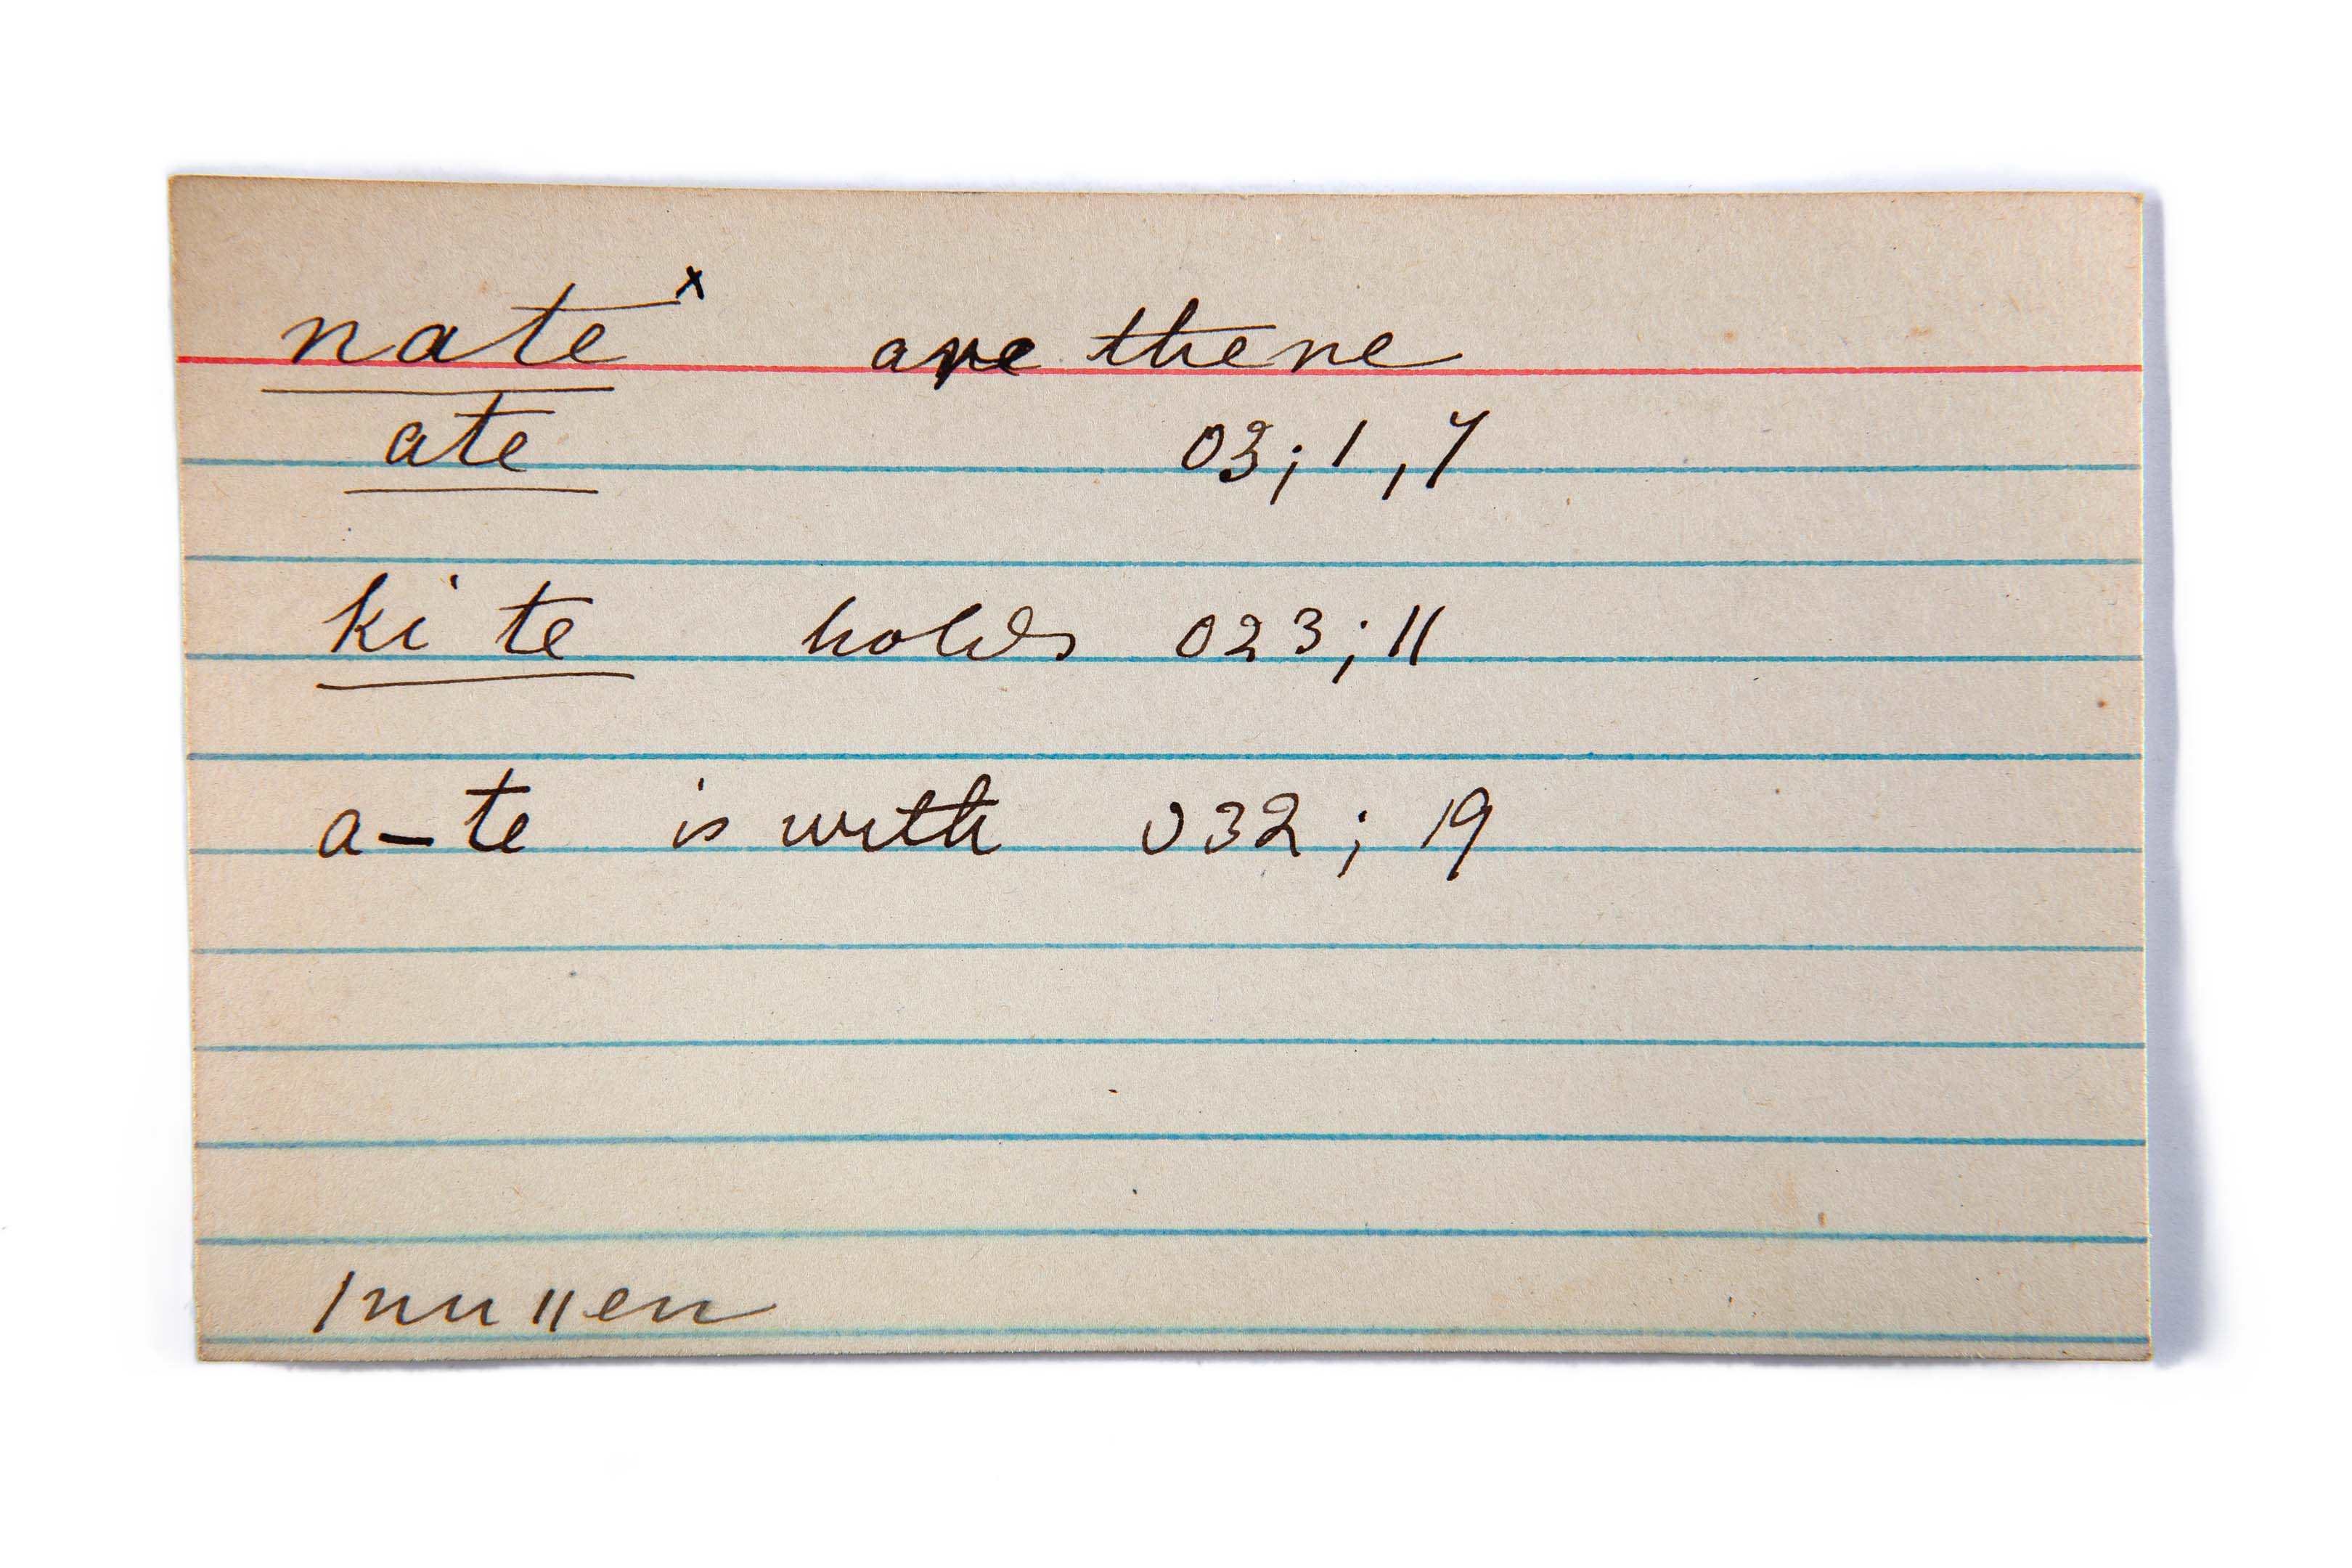 nate x are there
ate 03; 1, 7
ki te holds 023; 11
a-te is with 032; 19